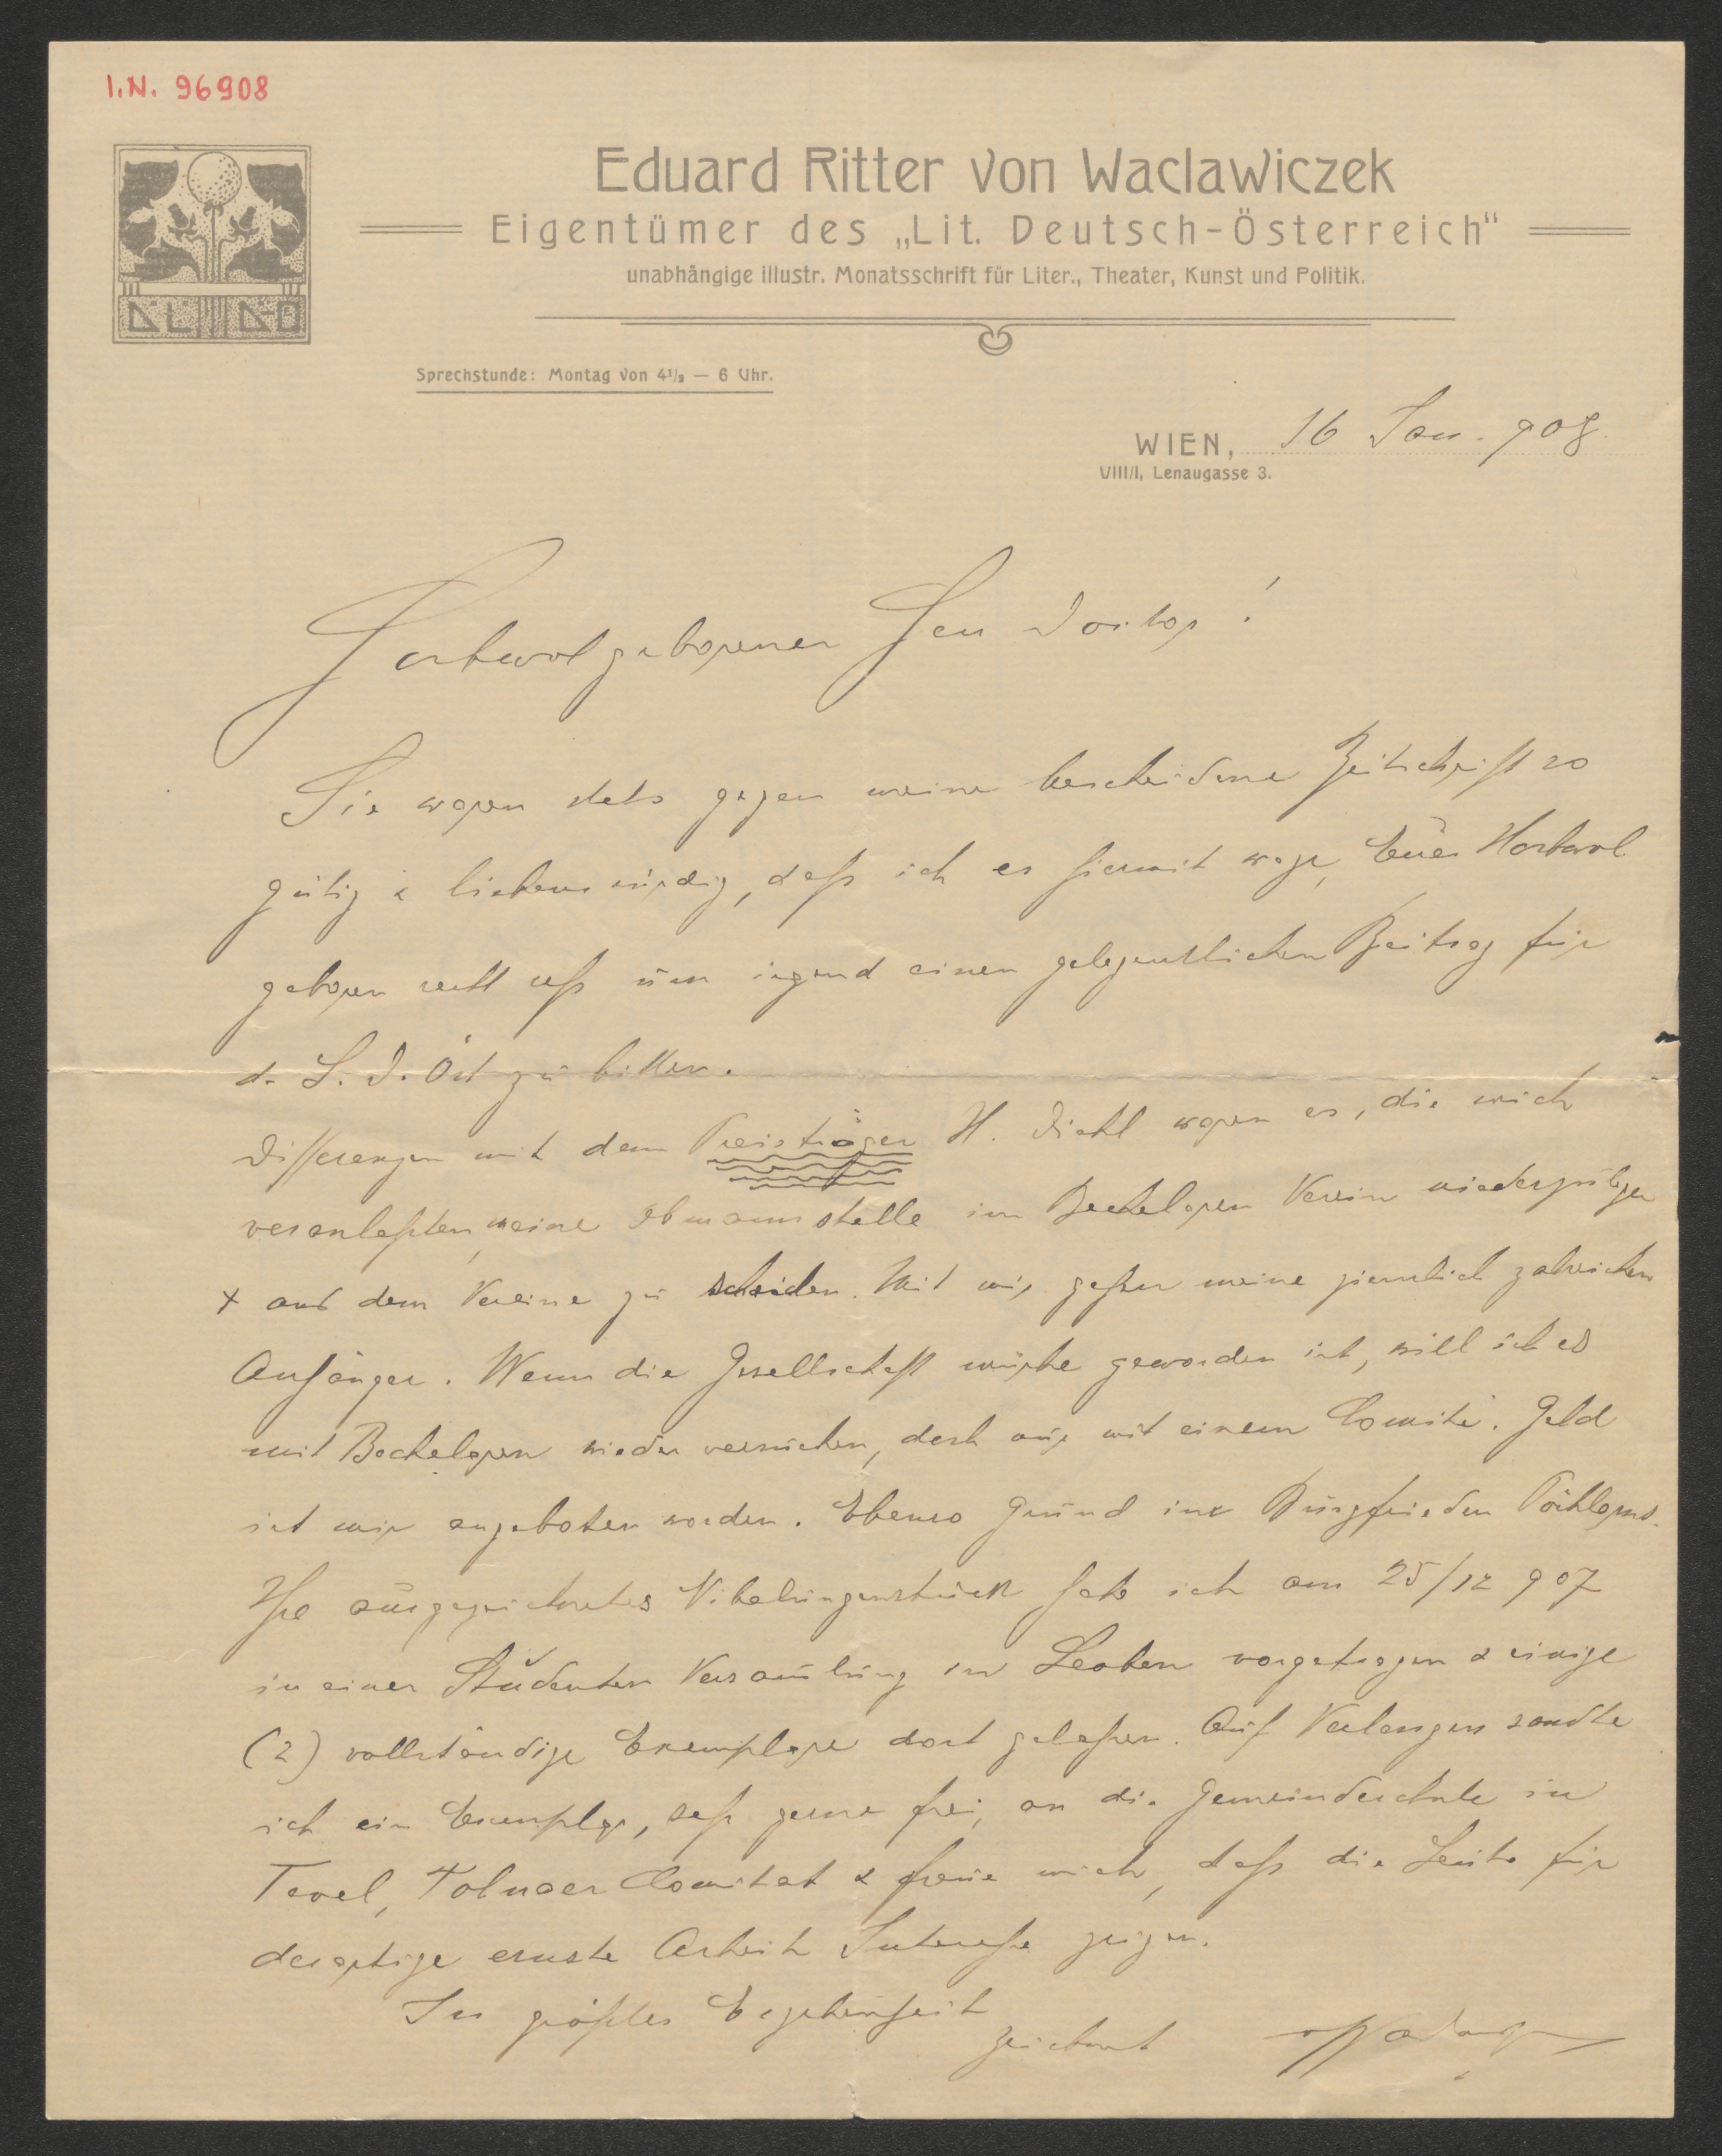 I.N. 96908
Eduard Ritter von Waclawiczek
Eigentümer des „Lit. Deutsch-Österreich"
unabhängige illustr. Monatsschrift für Liter., Theater, Kunst und Politik.
Sprechstunde: Montag von 4½ — 6 Uhr.
WIEN, 16 Jan. 908
VIII/1, Lenaugasse 3.
Hochwolgeborener Herr Doctor!
Sie waren stets gegen meine bescheidene Zeitschrift so
gütig & liebenswürdig, daß ich es hiermit wage, Euer Hochwol
geboren recht sehr um irgend einen gelegentlichen Beitrag für
d. L. D. Öst zu bitten.
Differenzen mit dem Preisträger H. Diehl waren es, die mich
veranlaßten, meine Obmannstelle im Bechelaren Verein niederzulegen
& aus dem Vereine zu scheiden. Mit mir gehen meine ziemlich zalreichen
Anhänger. Wenn die Gesellschaft mürbe geworden ist, will ich es
mit Bechelaren wieder versuchen, doch nur mit einem Comité. Geld
ist mir angeboten worden. Ebenso Grund im Burgfrieden Pöchlarns.
Ihr ausgezeichnetes Nibelungenstück habe ich am 25/12 907
in einer Studenten Versamlung in Leoben vorgetragen & einige
(2) vollständige Exemplare dort gelaßen. Auf Verlangen sandte
ich ein Exemplar, sehr gerne frei, an die Gemeindeschule in
Tevel, Tolnaer Comitat & freue mich, daß die Leute für
derartige ernste Arbeit Intereße zeigen.
In größter Ergebenheit
zeichnet